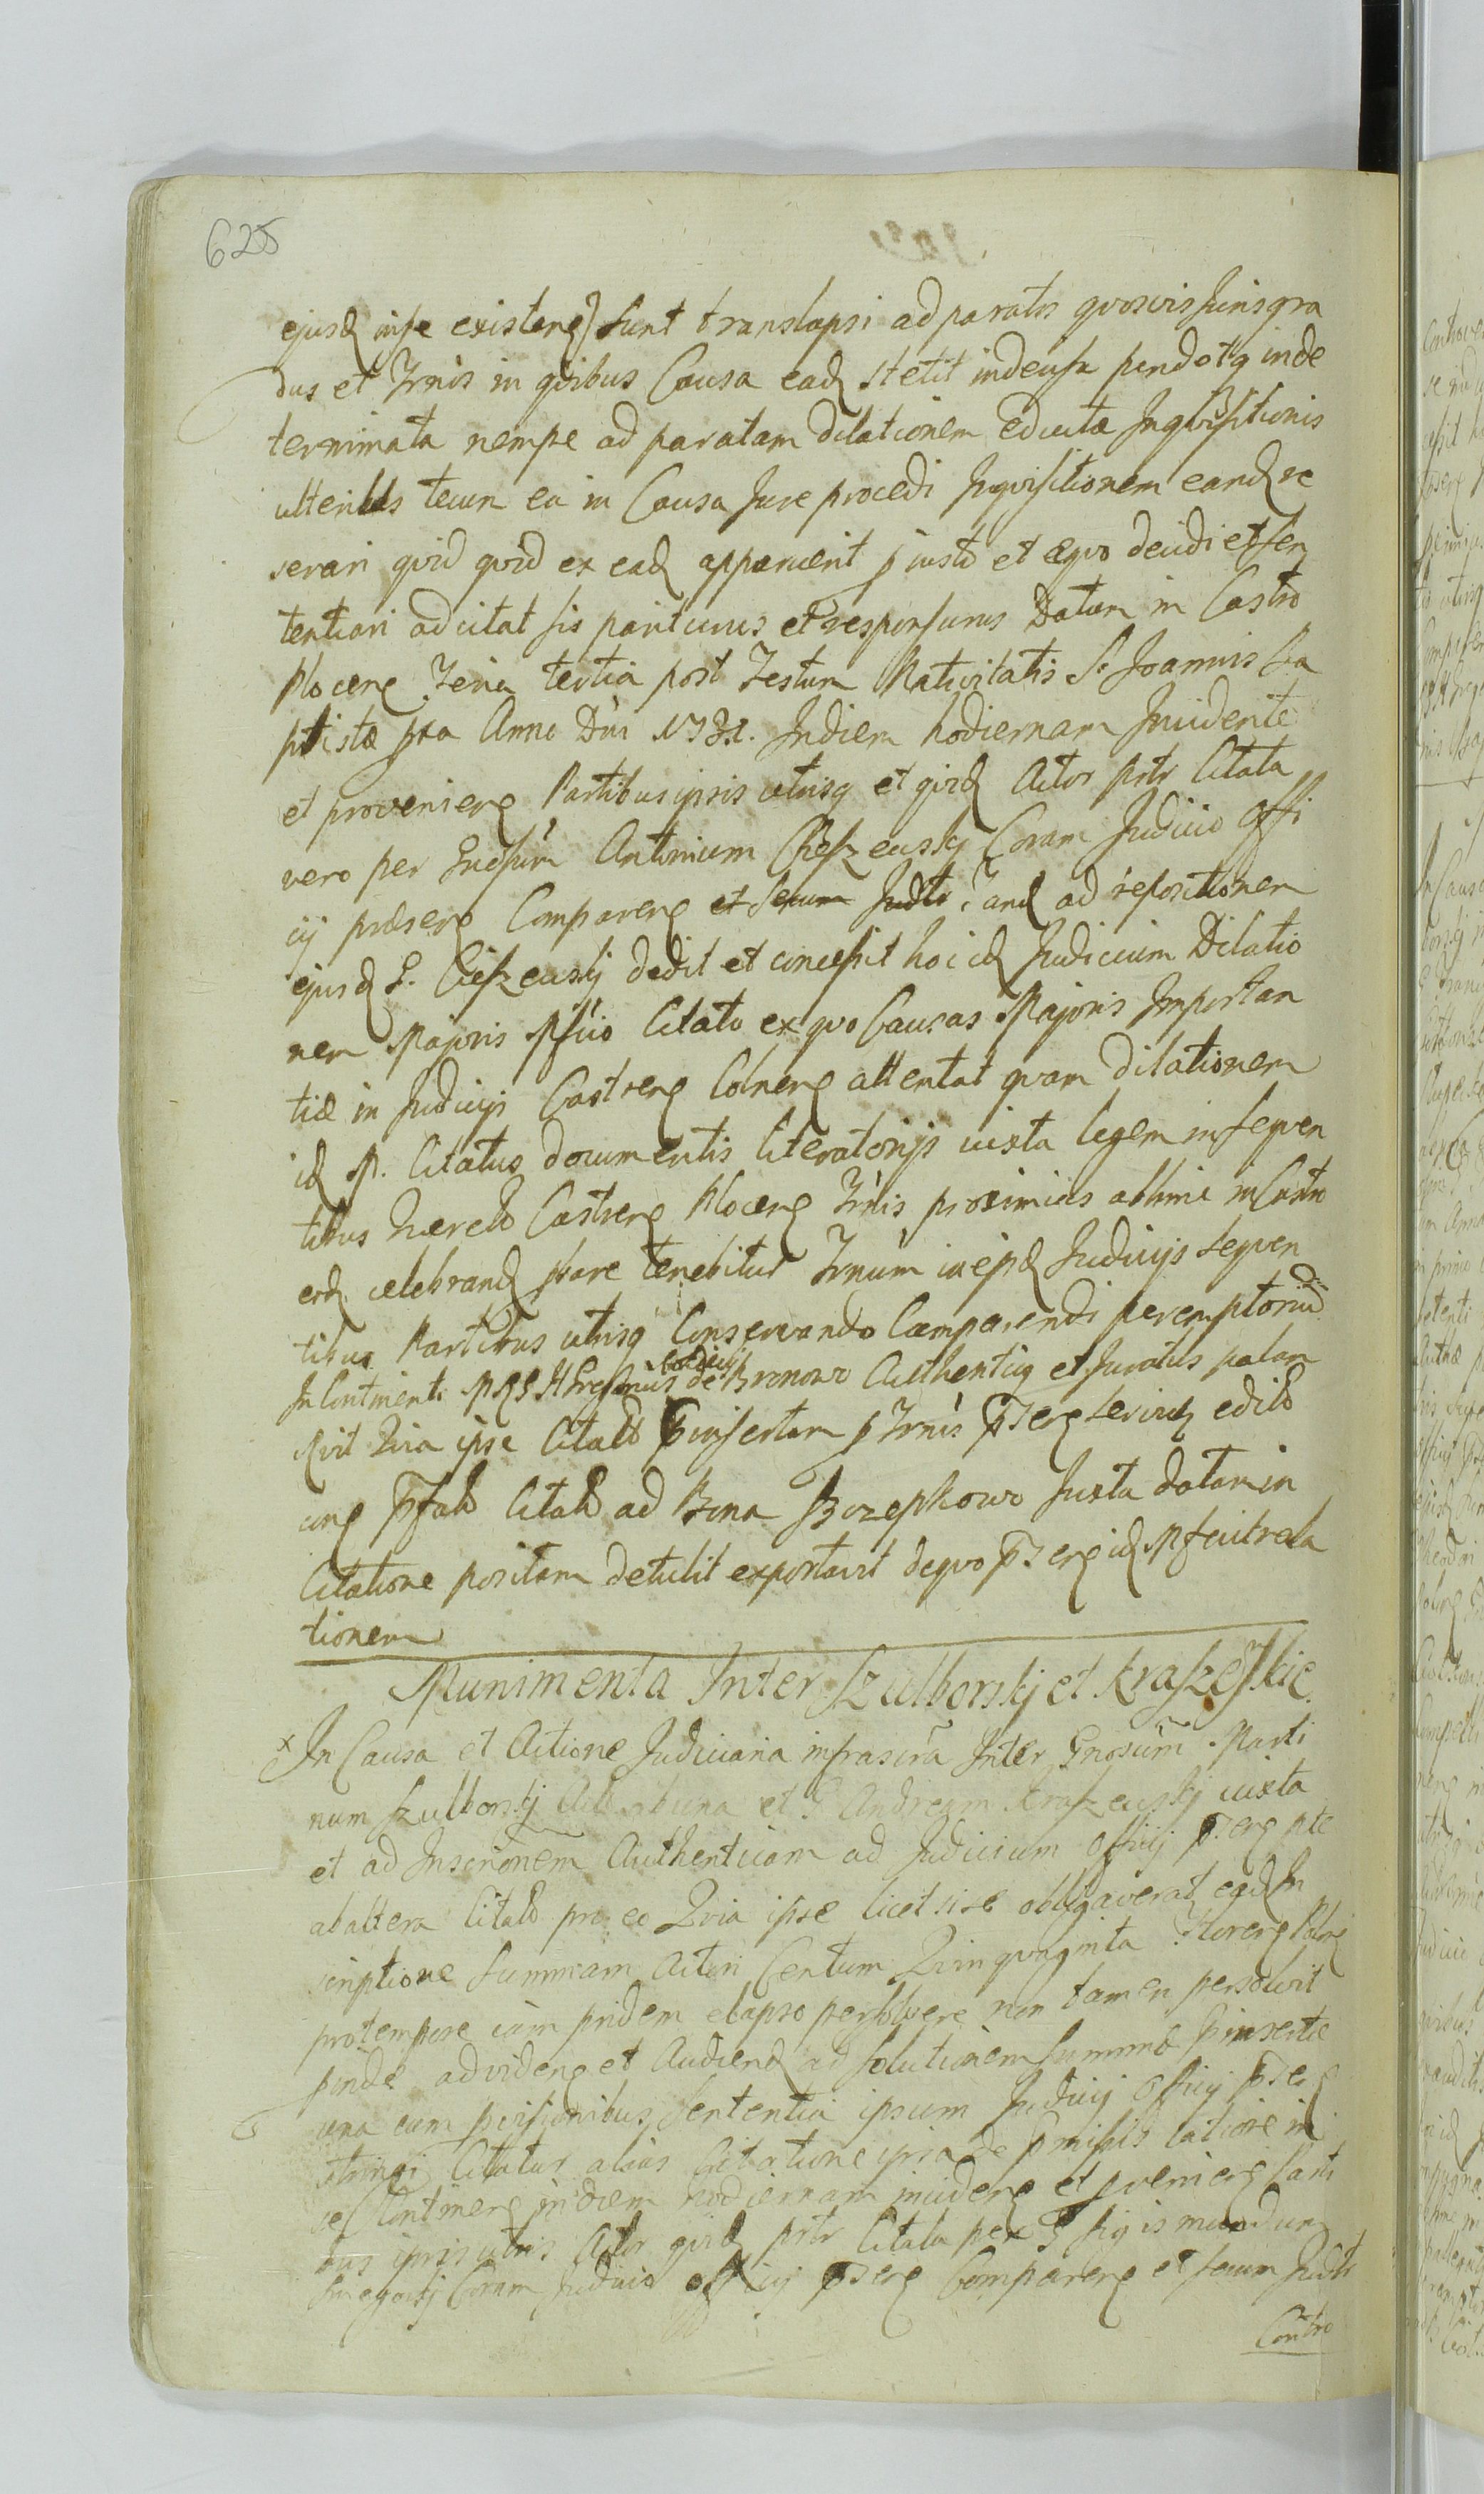 625
ejusd inse existeng sunt translapsi ad paratos qvosvis Juris gra
dus et Trnis in qvibus Causa ead stetit indeusa pendetq inde
terminata nempe ad paratam dilationem eductæ Inqvisitionis
ulterius tecum ea in Causa Jure procedi Inqvisitionem eand re
serari qvid qvid ex ead apparuerit juste et æqvo decidi et sen
tentiari ad citat sis pariturus et responsurus Datum in Castro
Plocen Feria tertia post Festum Nativitatis S. Joannis Ba
ptistæ pxa Anno Dni 1731. In diem hodiernam Incidente
et proveniere Partibus ipsis utrisq et qvid Actor prtr Citata
vero per Gnosum Antonium Ciesz eusky Coram Judicio Offi
cij præsere Comparere et secum Judtr. and ad repositionem
ejusd G. Ciesz eusky dedit et concessit hoc id Judicium Dilatio
nem Majoris Citato ex qvo Causas Majoris Importan
tiæ in Judicijs Castrens Colnens attentat qvam dilationem
id M. Citatus documentis literatorijs iuxta legem in seqven
tibus Castrens Plocens Trnis proximius abhinc in Castro
eod celebrand tenebitur Trnum in ejsd Judicijs seqven
tibus Partibus utrisq Conservando Comparendi peremptorium
In Continenti de Bronowo Authenticq et Juratus palam
Qvia ipse Citato insertam Trnis edito
Citato ad Bona Brzephowo Juxta datam in
Citatione positam detulit exportavit deqvo id fecit rela
tionem
Munimenta Inter Szulborskj et Kraszeskie
x In Causa et Actione Judiciaria infrascra Inter Gnosum Marti
num Szulborskj Actor abuna et G Andream Kraszeuskj iuxta
et ad Inscrionem Authenticam ad Judicium Officij pte
ab altera Citato pro eo Qvia ipse licet sise obligaverat ead In
scriptione Summam Actori Centum Qvinqvaginta Florens Polns
pro tempore iam pridem elapso persolvere non tamen persolvit
pinde ad videng et Audiend ad solutionem summæ pinsertæ
una cum sententia ipsum Judicij Officij
Citatus alias Citatione ipsa de latiore in
se Continere in diem hodiernam incidere et pveniere Parti
bus ipsis utris Actor qvid prtr Citata per G Sigismundum
Coram Judicio officij Comparere et secum Judtr
Contro